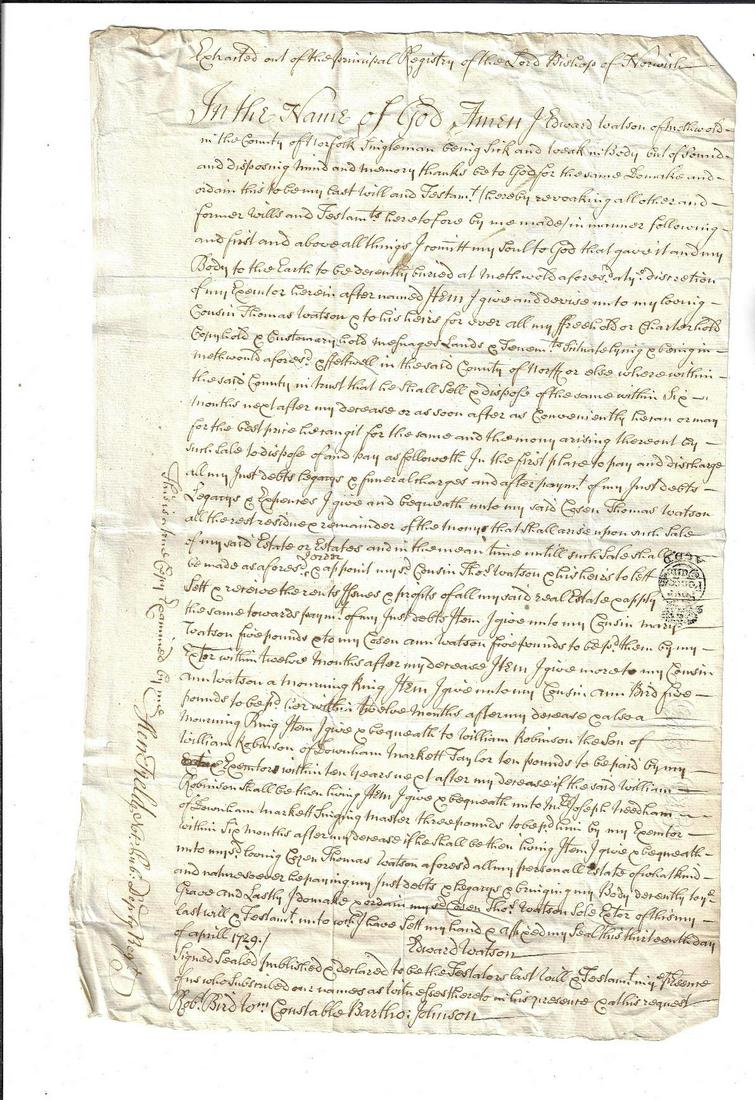 Extracted out of the principal Registry of the Lord Bishop of Norwich
In the Name of God Amen I Edward Watson of Methwold
in the County of Norfolk Singleman being Sick and weak in Body but of sound
and disposing mind and memory thanks be to God for the same Do make and
ordain this to be my last will and Testamt. (hereby revoaking all other and
former Wills and Testamts. heretofore by me made) in manner following
and first and above all things I comitt my Soul to God that gave it and my
Body to the Earth to be decently buried at Methwold aforesd. at ye. discretion
of my Executor herein after named Item I give and devise unto my loving
Cousin Thomas Watson & to his heirs for ever all my ffreehold or Charterhold
Copyhold & Customaryhold mesuages Lands & Tenemts. Situate lying & being in
Methwould aforesd. & ffeltwell in the said County of Norff. or else where within
the said County in trust that he shall Sell & dispose of the same within Six
months next after my decease or as soon after as Conveniently he can or may
for the best price he can git for the same and the mony arising thereout by
such Sale to dispose of and pay as followeth In the first place to pay and discharge
all my Just debts legacys & funeral charges and after paymt. of my Just debts
Legacys & Expences I give and bequeath unto my said Cosen Thomas Watson
all the rest residue & remainder of the monys that shall arise upon such Sale
of my said Estate or Estates and in the mean time untill such Sale shall
be made as aforesd. I order & appoint my sd. Cousin Thos. Watson & his heirs to lett
Sett & receive the rents Issues & profits of all my said real Estate & apply
the same towards paymt. of my Just debts Item I give unto my Cousin Mary
Watson five pounds & to my Cosen Ann Watson five pounds to be pd. them by my
Extor within twelve Months after my decease Item I give more to my Cousin
Ann Watson a mourning Ring Item I give unto my Cousin Ann Bird five
pounds to be pd. her within twelve Months after my decease & also a
mourning Ring Item I give & bequeath to William Robinson the Son of
William Robinson of Downham Markett Taylor ten pounds to be paid by my
Executor within ten years next after my decease if the said William
Robinson shall be then living Item I give & bequeath unto Mr. Joseph Needham
of Downham Markett Singing Master three pounds to be pd. him by my Executor
within Six months after my decease if he shall be then living Item I give & bequeath
unto my sd. loving Cozen Thomas Watson aforesd. all my personall Estate of what kind
and nature soever he paying my Just debts & legacys & bringing my Body decently to ye.
Grave and Lastly I do make & ordain my sd. Cosen Thos. Watson Sole Extor of this my
last will & Testamt. unto wch. I have Sett my hand & affixed my Seal this thirteenth day
of aprill 1729./ Edward Watson
Signed Sealed published & declared to be the Testators last Will & Testamt. in ye. presence
of us who Subscribed our names as witnesses thereto in his presence & at his request
Rob. Bird Wm. Constable Bartho: Johnson
This is a true Copy Examined by me
Hen: Field Not: Pub: Depty. Regr.